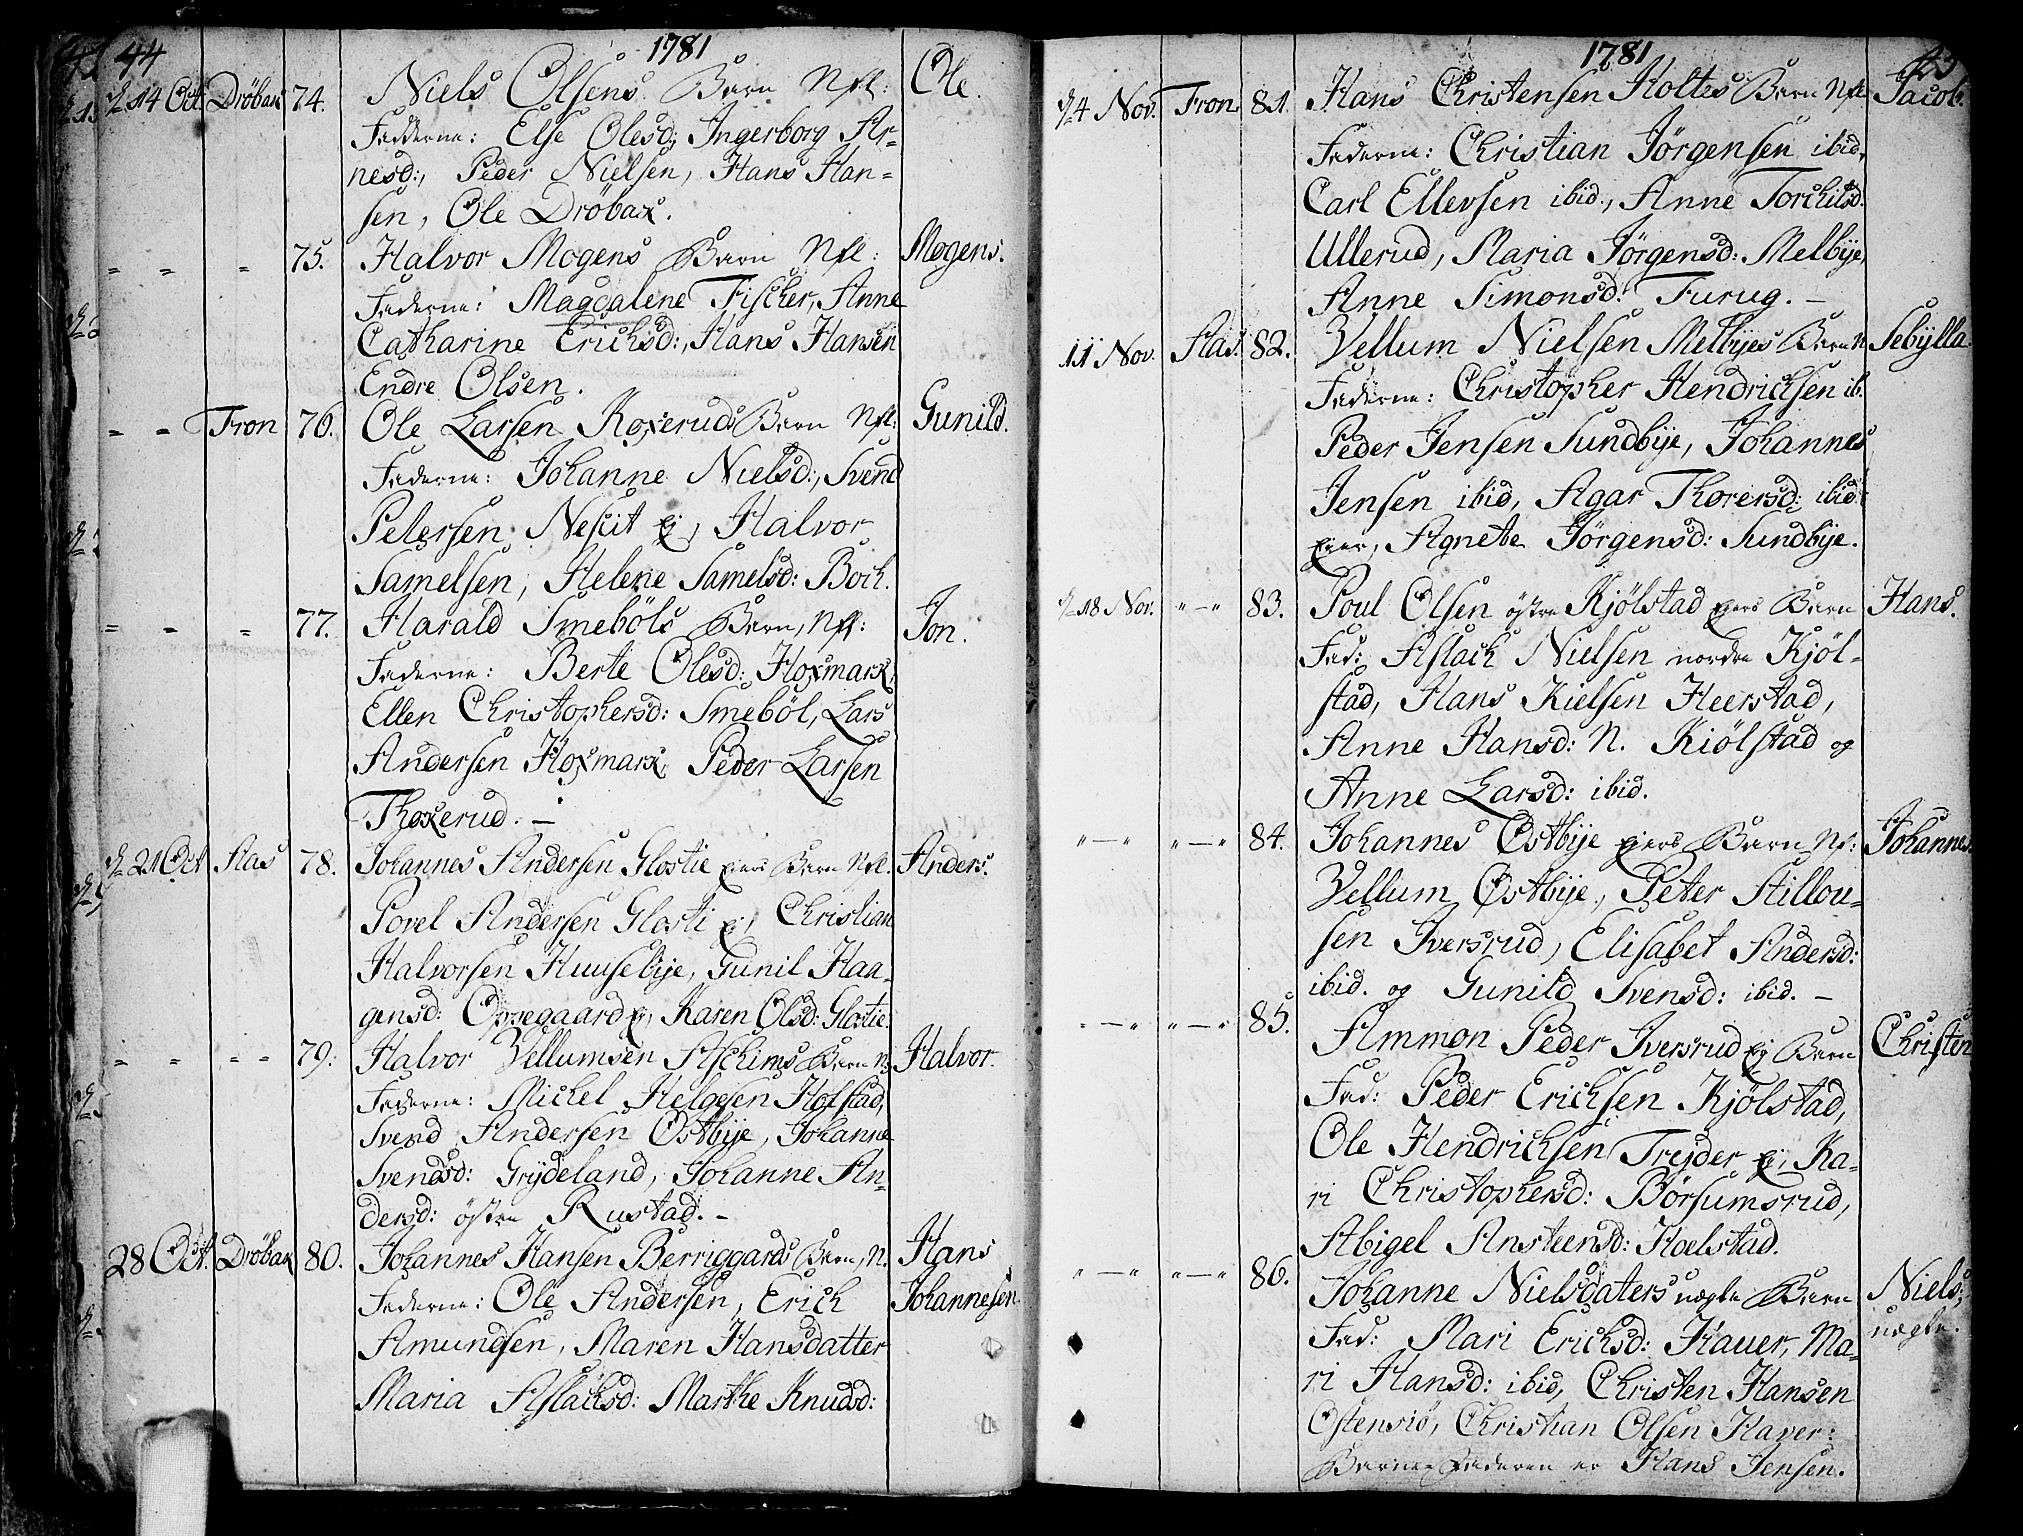 44
1781
d. 14 Oct. Dröbak 74. Niels Olsens Barn Nfl: Ole.
Fadderne: Else Olesd:, Ingerborg Ar-
nesd:, Peder Nielsen, Hans Han=
sen, Ole Dröbak.
= = = 75. Halvor Mogens Barn Nfl: Mogens.
Fadderne: Magdalene Fischer, Anne
Catharine Erichsd:, Hans Hansen
Endre Olsen.
= = Fron 76. Ole Larsen Koxeruds Barn Nfl: Gunild.
Fadderne: Johanne Nielsd:, Svend
Petersen Nesset Ej, Halvor
Samelsen, Helene Samelsd: Boch.
= = = 77. Harald Smeböls Barn, Nfl: Jon.
Fadderne: Berte Olesd: Hoxmark,
Ellen Christophersd: Smeböl, Lars
Andersen Hoxmark, Peder Larsen
Thoxerud. -
d. 21 Oct Aas 78. Johannes Andersen Glostie Eiers Barn Nfl. Anders.
Povel Andersen Glosti Ej, Christian
Halvorsen Huusebije, Gunil Haa-
gensd: Oppegaard Ej, Karen Olsd: Glostie.
= = = = 79. Halvor Vellumsen Aschims Barn N: Halvor.
Fadderne: Michel Helgesen Hofstad,
Svend Andersen Østbije, Johanne
Svendsd: Grydeland, Johanne An-
dersd: östre Rustad. -
28 Oct. Dröbak 80. Johannes Hansen Berriggards Barn, N. Hans
Fadderne: Ole Andersen, Erich Johannesen
Amundsen, Maren Hansdatter
Maria Aslachsd: Marthe Knudsd:
1781
45
d. 4 Nov. Fron 81. Hans Christensen Holtes Barn Nfl Jacob.
Fadderne: Christian Jörgensen ibid,
Carl Ellevsen ibid., Anne Torchilsd:
Ullerud, Maria Jörgensd: Melbije,
Anne Simonsd: Furug. -
11 Nov. Aas. 82. Vellum Nielsen Melbijes Barn N Sebÿlla
Fadderne: Christopher Hendrichsen ib.
Peder Jensen Sundbije, Johannes
Jensen ibid, Agar Thorersd: ibid:
Eier, Agnete Jörgensd: Sundbije.
d. 18 Nov. "-" 83. Poul Olsen östre Kjölstad Eiers Barn Hans.
Fad: Aslach Nielsen nordre Kjöl-
stad, Hans Kielsen Heerstad,
Anne Hansd: N. Kiölstad og
Anne Larsd: ibid.
"-" "-" 84. Johannes Østbije Eiers Barn Nf: Johannes.
Vellum Østbije, Peter Stillou-
sen Iversrud, Elisabet Andersd:
ibid. og Gunild Svensd: ibid. -
"-" "-" 85. Ammon Peder Iversrud Ej Barn Christen
Fad: Peder Erichsen Kjölstad,
Ole Hendrichsen Trejder Ej, Ka-
ri Christophersd: Börsumsrud,
Abigel Ansteensd: Hoelstad.
"-" "-" 86. Johanne Nielsdaters uægte Barn Niels,
Fad: Mari Erichsd: Hauer, Ma- uægte.
ri Hansd: ibid, Christen Hansen
Ostensiö, Christian Olsen Haver:
Barne Faderen er Hans Jensen.